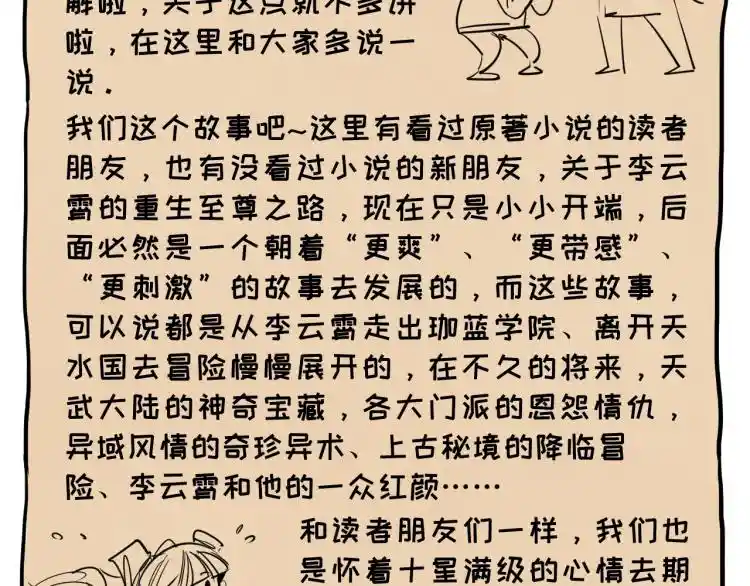 解啦，关于这点就不多讲
啦，在这里和大家多说一
说．
我们这个故事吧~这里有看过原著小说的读者
朋友，也有没看过小说的新朋友，关于李云
霄的重生至尊之路，现在只是小小开端，后
面必然是一个朝着“更爽”、“更带感”、
“更刺激”的故事去发展的，而这些故事，
可以说都是从李云霄走出珈蓝学院、离开天
水国去冒险慢慢展开的，在不久的将来，天
武大陆的神奇宝藏，各大门派的恩怨情仇，
异域风情的奇珍异术、上古秘境的降临冒
险、李云霄和他的一众红颜……
和读者朋友们一样，我们也
是怀着十星满级的心情去期